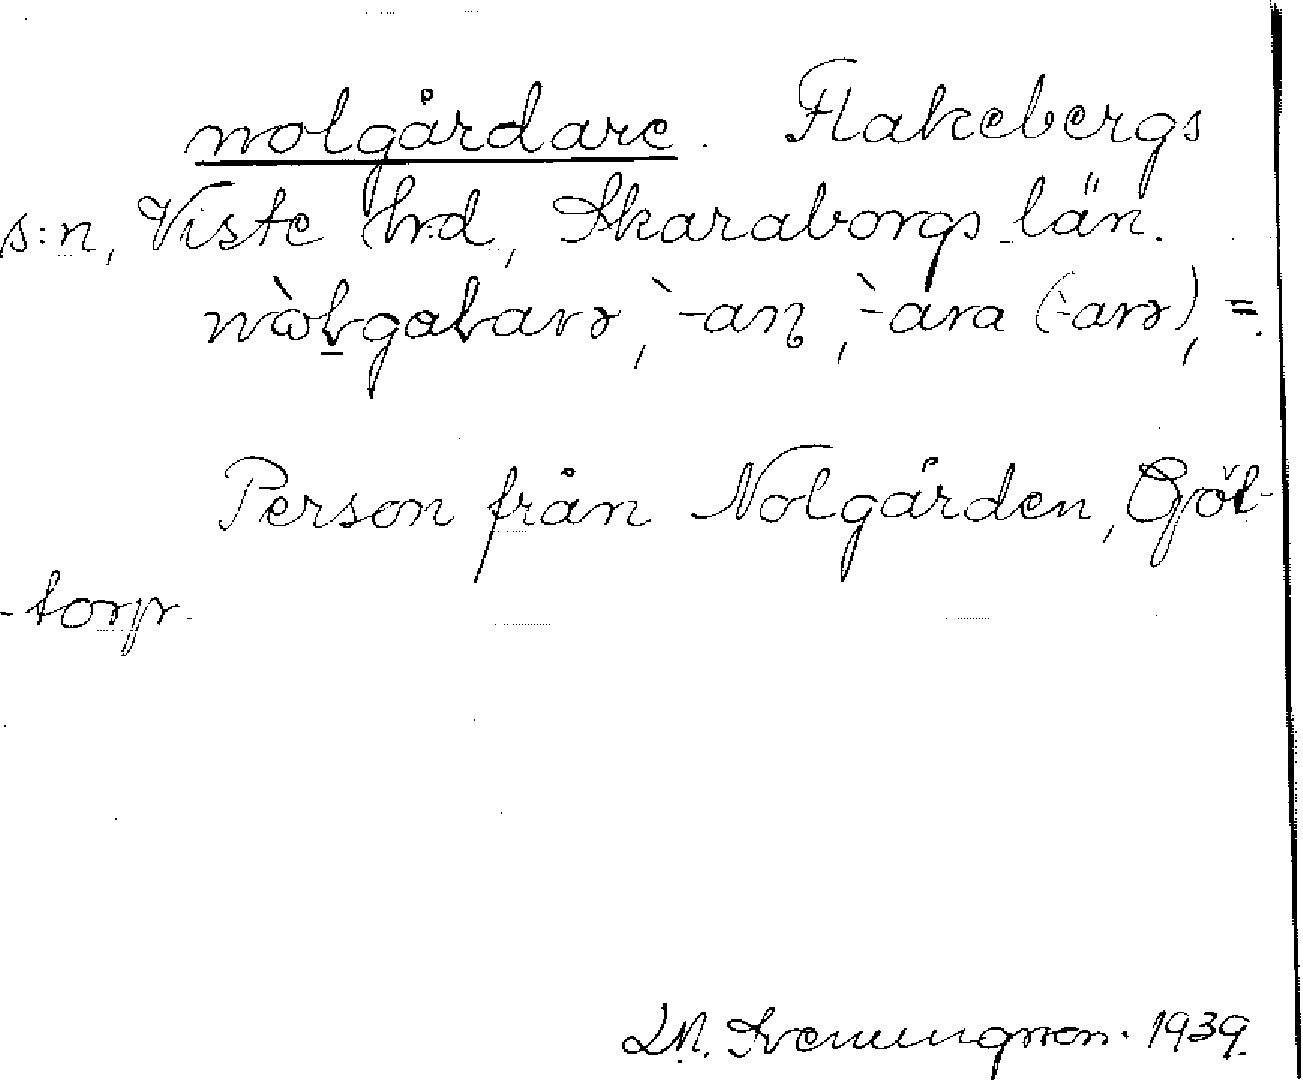 nolgårdare. Flakebergs
s:n, Viste hrd, Skaraborgs län.
-an, -ara (-arə), =.
Person från Nolgården, Gjöt-
-torp.
D.N. Svenungsson. 1939.